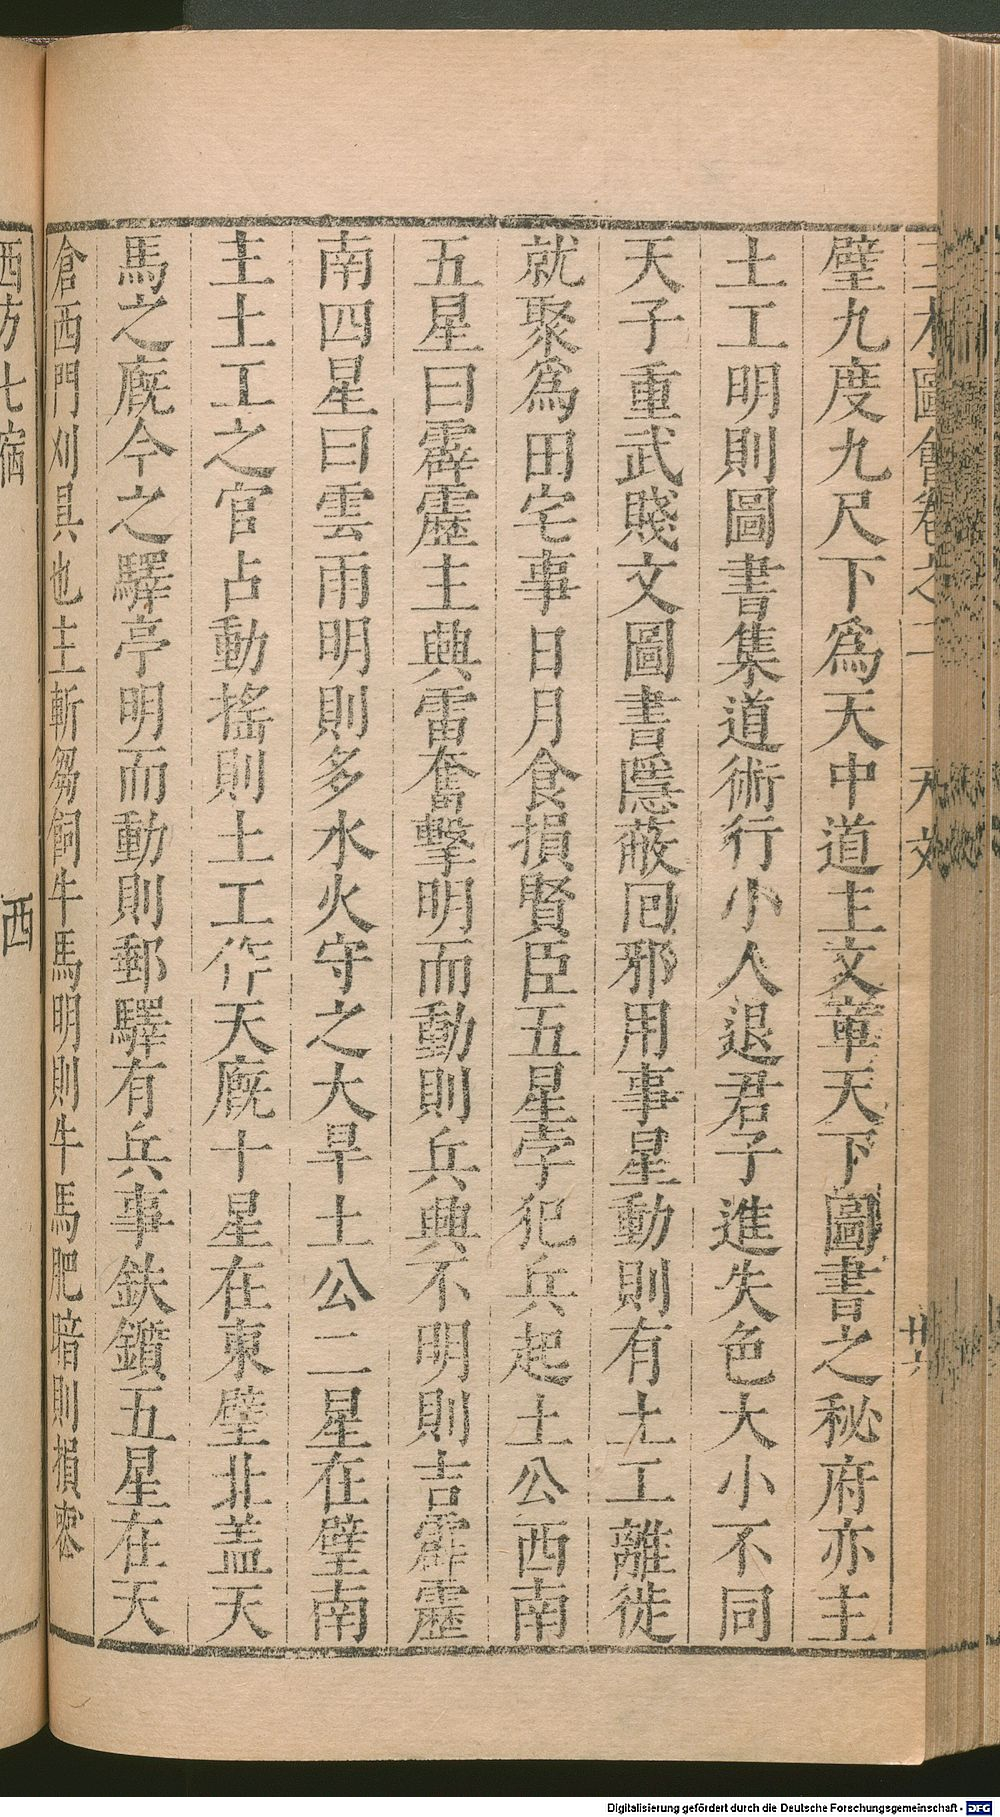 三才圖會卷之二 天文 廿六
壁九度九尺下為天中道主文章天下圖書之秘府亦主
土工明則圖書集道術行小人退君子進失色大小不同
天子重武賤文圖書隱蔽囘邪用事星動則有土工離徙
就聚爲田宅事日月食損賢臣五星孛犯兵起土公西南
五星曰霹靂主興雷奮擊明而動則兵興不明則吉霹靂
南四星曰雲雨明則多水火守之大旱土公二星在壁南
主土工之官占動搖則土工作天廐十星在東壁北蓋天
馬之廐今之驛亭明而動則郵驛有兵事鈇鑕五星在天
倉西門刈具也主斬芻飼牛馬明則牛馬肥暗則損
西方七宿
西
Digitalisierung gefördert durch die Deutsche Forschungsgemeinschaft - DFG